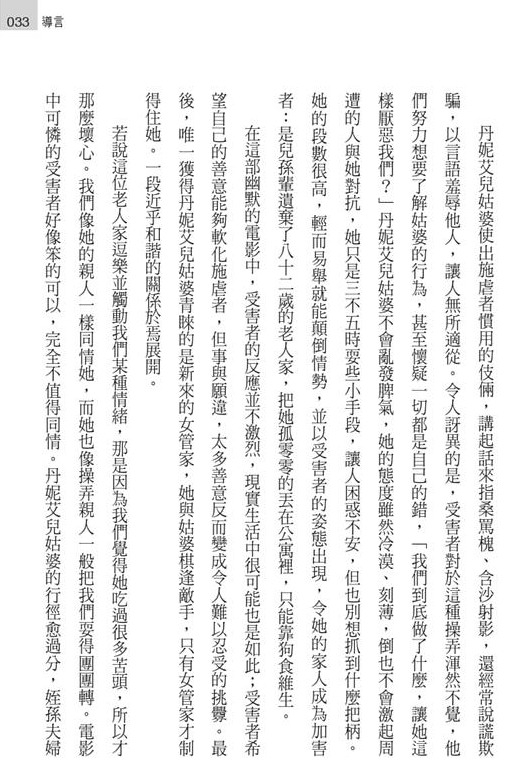 033 導言
丹妮艾兒姑婆使出施虐者慣用的伎倆，講起話來指桑罵槐、含沙射影，還經常說謊欺
騙，以言語羞辱他人，讓人無所適從。令人訝異的是，受害者對於這種操弄渾然不覺，他
們努力想要了解姑婆的行為，甚至懷疑一切都是自己的錯，「我們到底做了什麼，讓她這
樣厭惡我們？」丹妮艾兒姑婆不會亂發脾氣，她的態度雖然冷漠、刻薄，倒也不會激起周
遭的人與她對抗，她只是三不五時耍些小手段，讓人困惑不安，但也別想抓到什麼把柄。
她的段數很高，輕而易舉就能顛倒情勢，並以受害者的姿態出現，令她的家人成為加害
者：是兒孫輩遺棄了八十二歲的老人家，把她孤零零的丟在公寓裡，只能靠狗食維生。
在這部幽默的電影中，受害者的反應並不激烈，現實生活中很可能也是如此；受害者希
望自己的善意能夠軟化施虐者，但事與願違，太多善意反而變成令人難以忍受的挑釁。最
後，唯一獲得丹妮艾兒姑婆青睞的是新來的女管家，她與姑婆棋逢敵手，只有女管家才制
得住她。一段近乎和諧的關係於焉展開。
若說這位老人家逗樂並觸動我們某種情緒，那是因為我們覺得她吃過很多苦頭，所以才
那麼壞心。我們像她的親人一樣同情她，而她也像操弄親人一般把我們耍得團團轉。電影
中可憐的受害者好像笨的可以，完全不值得同情。丹妮艾兒姑婆的行徑愈過分，姪孫夫婦